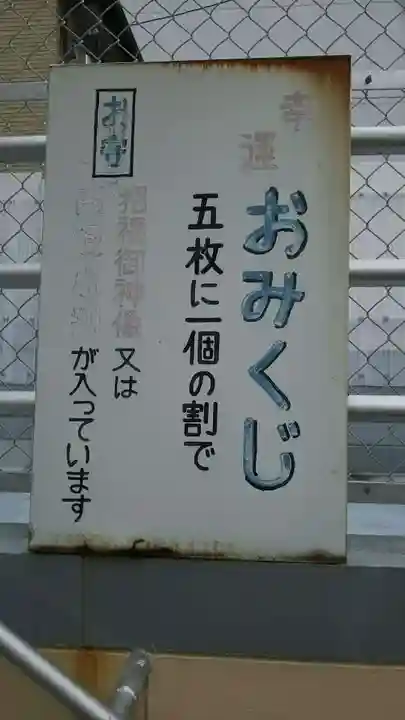 幸運
おみくじ
五枚に一個の割で
お守
招福御神像又は
が入っています